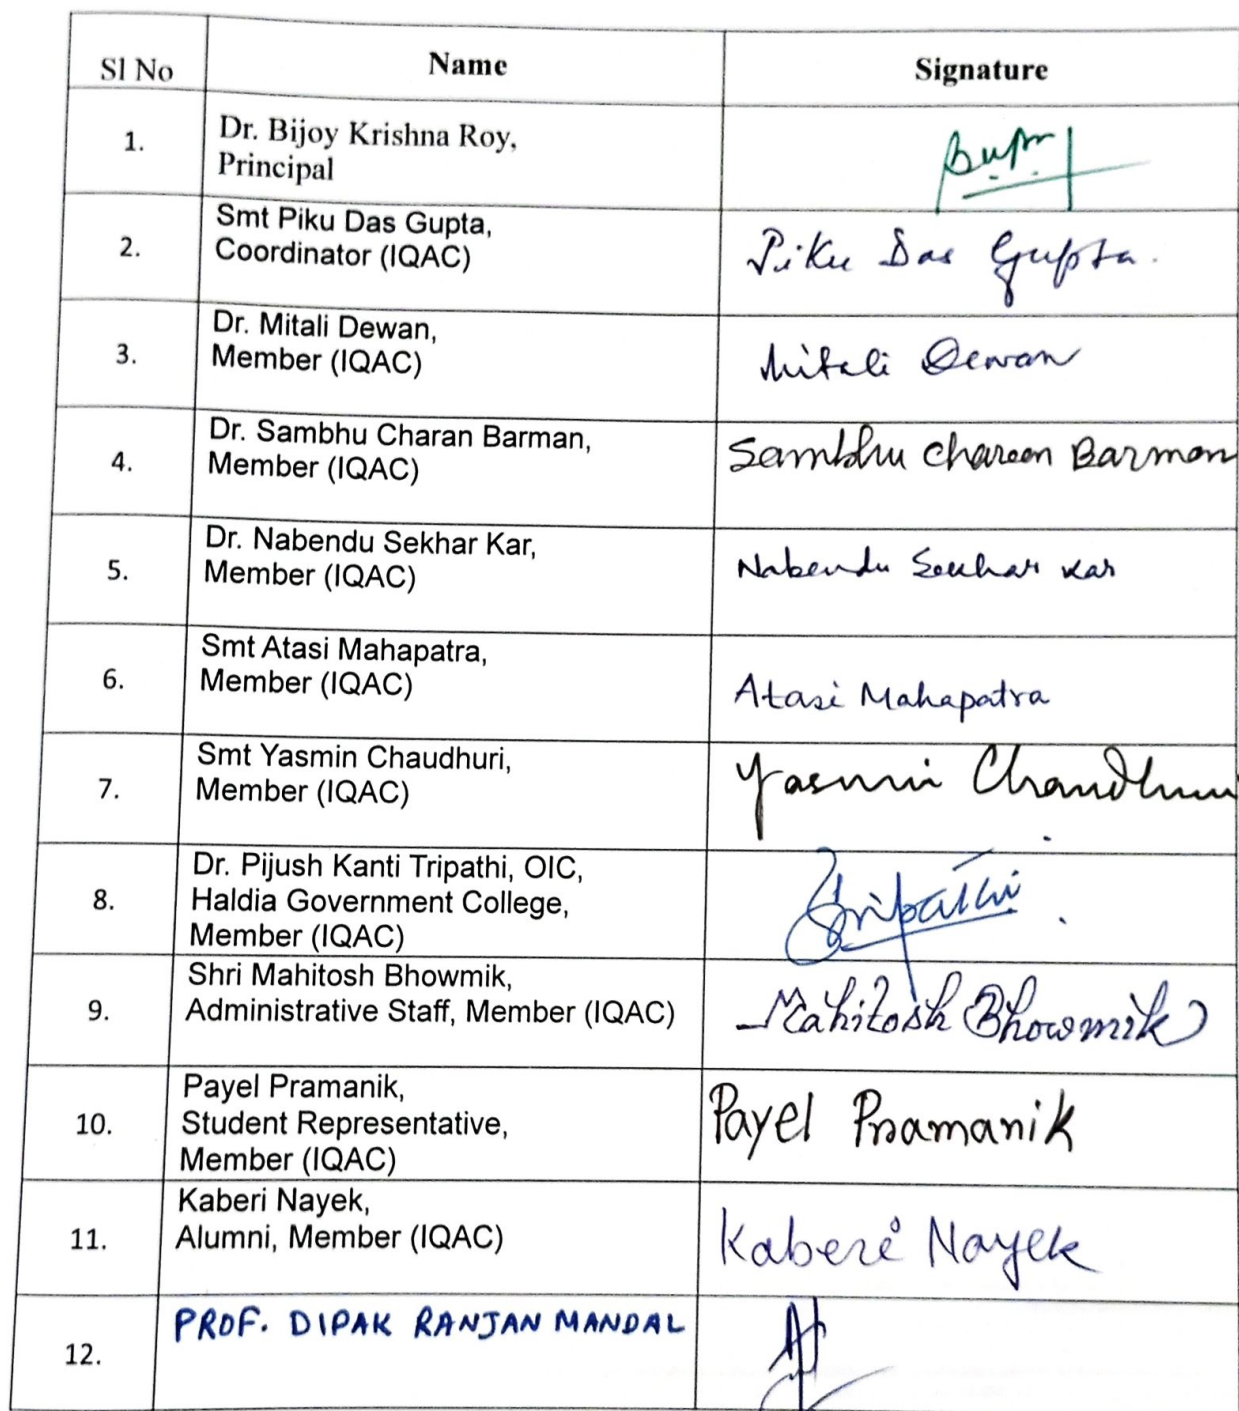 Sl No Name Signature
1. Dr. Bijoy Krishna Roy,
Principal
2. Smt Piku Das Gupta,
Coordinator (IQAC)
Piku Das Gupta.
3. Dr. Mitali Dewan,
Member (IQAC)
Mitali Dewan
4. Dr. Sambhu Charan Barman,
Member (IQAC)
Sambhu Charan Barman
5. Dr. Nabendu Sekhar Kar,
Member (IQAC)
Nabendu Sekhar Kar
6. Smt Atasi Mahapatra,
Member (IQAC)
Atasi Mahapatra
7. Smt Yasmin Chaudhuri,
Member (IQAC)
Yasmin Chaudhuri
8. Dr. Pijush Kanti Tripathi, OIC,
Haldia Government College,
Member (IQAC)
Tripathi
9. Shri Mahitosh Bhowmik,
Administrative Staff, Member (IQAC)
Mahitosh Bhowmik
10. Payel Pramanik,
Student Representative,
Member (IQAC)
Payel Pramanik
11. Kaberi Nayek,
Alumni, Member (IQAC)
Kaberi Nayek
12. PROF. DIPAK RANJAN MANDAL